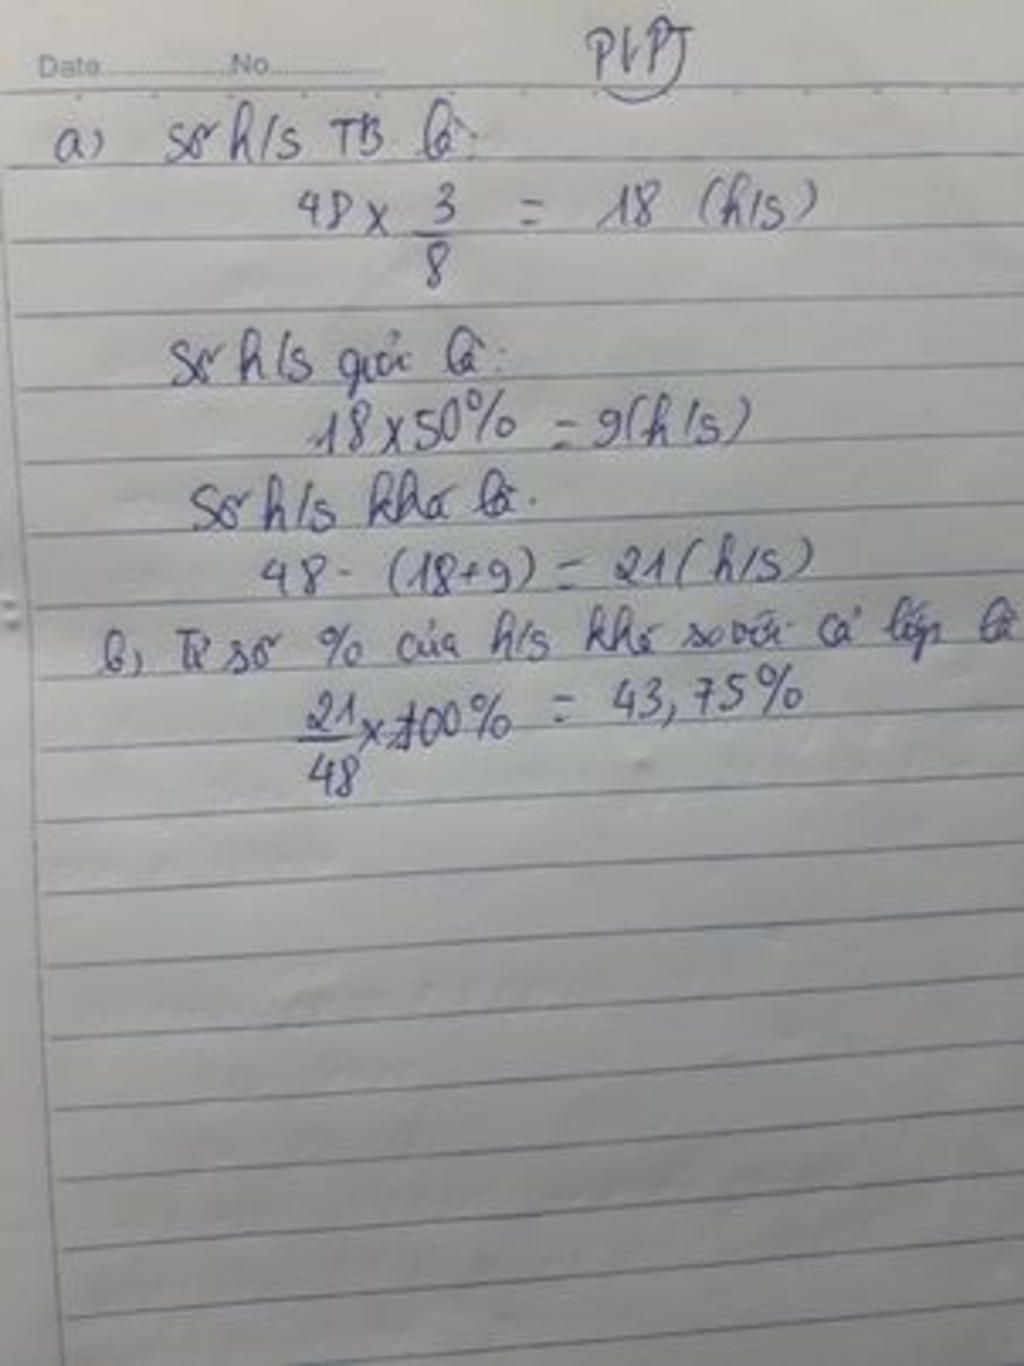 Date............No............
a) Số h/s TB là:
48 x 3/8 = 18 (h/s)
Số h/s giỏi là:
18 x 50% = 9 (h/s)
Số h/s khá là.
48 - (18+9) = 21 (h/s)
b, Tỉ số % của h/s khá so với cả lớp là
21/48 x 100% = 43,75%